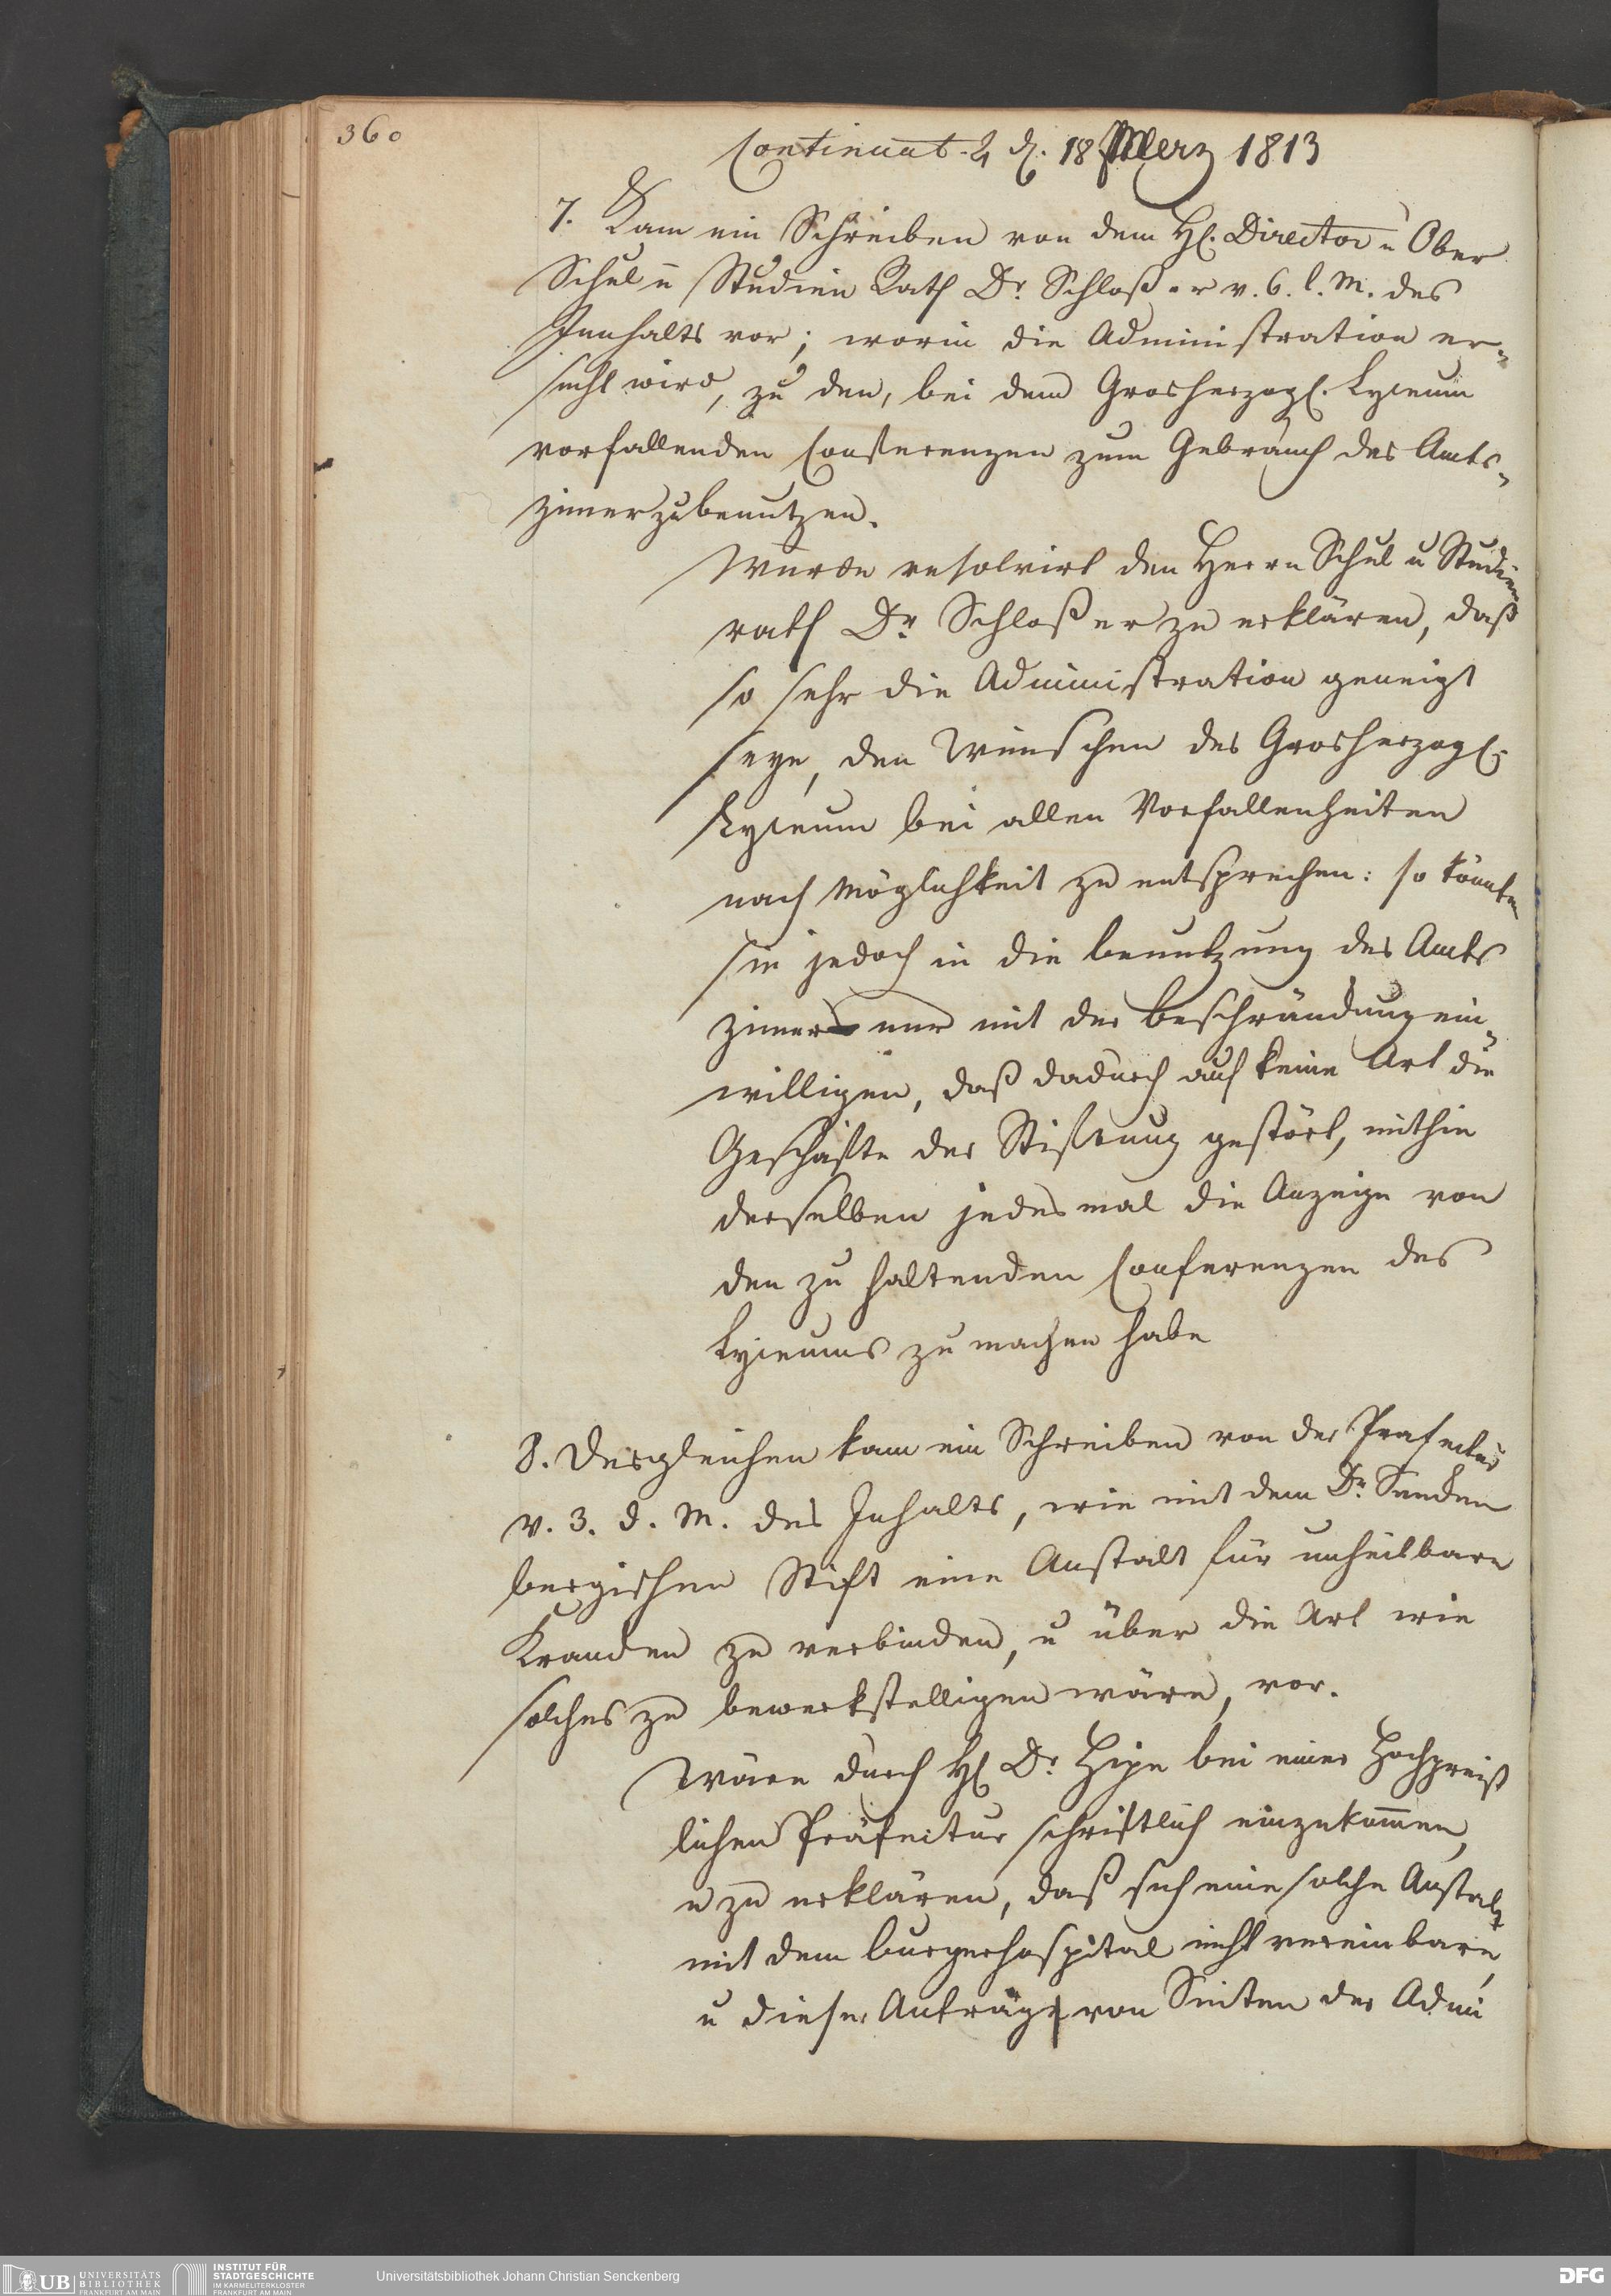 360
Continuat. 4 d. 18 Merz 1813
7. Kam ein Schreiben von dem H. Director u Ober
Schul u Studien Rath Dr. Schlosser v. 6. l. M. des
Innhalts vor; worin die Administration er=
sucht wird, zu den, bei dem Grosherzogl. Lyceum
vorfallenden Conferenzen zum Gebrauch des Amts=
zimer zu benutzen.
Wurde resolvirt den Herrn Schul u Studien
rath Dr Schlosser zu erklären, daß
so sehr die Administration geneigt
seye, den Wünschen des Grosherzogl.
Lyceum bei allen Vorfallenheiten
nach Möglichkeit zu entsprechen: so könnten
sie jedoch in die benutzung des Amts
zimers nur mit der beschränckung ein=
willigen, daß dadurch auf keine Art die
Geschäfte der Stiftung gestört, mithin
derselben jedesmal die Anzeige von
den zu haltenden Conferenzen des
Lyceums zu machen habe
8. Desgleichen kam ein Schreiben von der Präfectur
v. 3. d. M. des Inhalts, wie mit dem Dr. Senken
bergischen Stift eine Anstalt für unheilbare
Krancken zu verbinden, u über die Art wie
solches zu bewerkstelligen wäre, vor.
Wäre durch H Dr. bei einer Hochpreiß
lichen Präfectur schriftlich einzukommen,
u zu erklären, daß sich eine solche Anstalt
mit dem burgerhospital nicht vereinbare,
u dieser Anträge von Seiten der Admi
UB
UNIVERSITÄTS
BIBLIOTHEK
FRANKFURT AM MAIN
INSTITUT FÜR
STADTGESCHICHTE
IM KARMELITERKLOSTER
FRANKFURT AM MAIN
Universitätsbibliothek Johann Christian Senckenberg
DFG